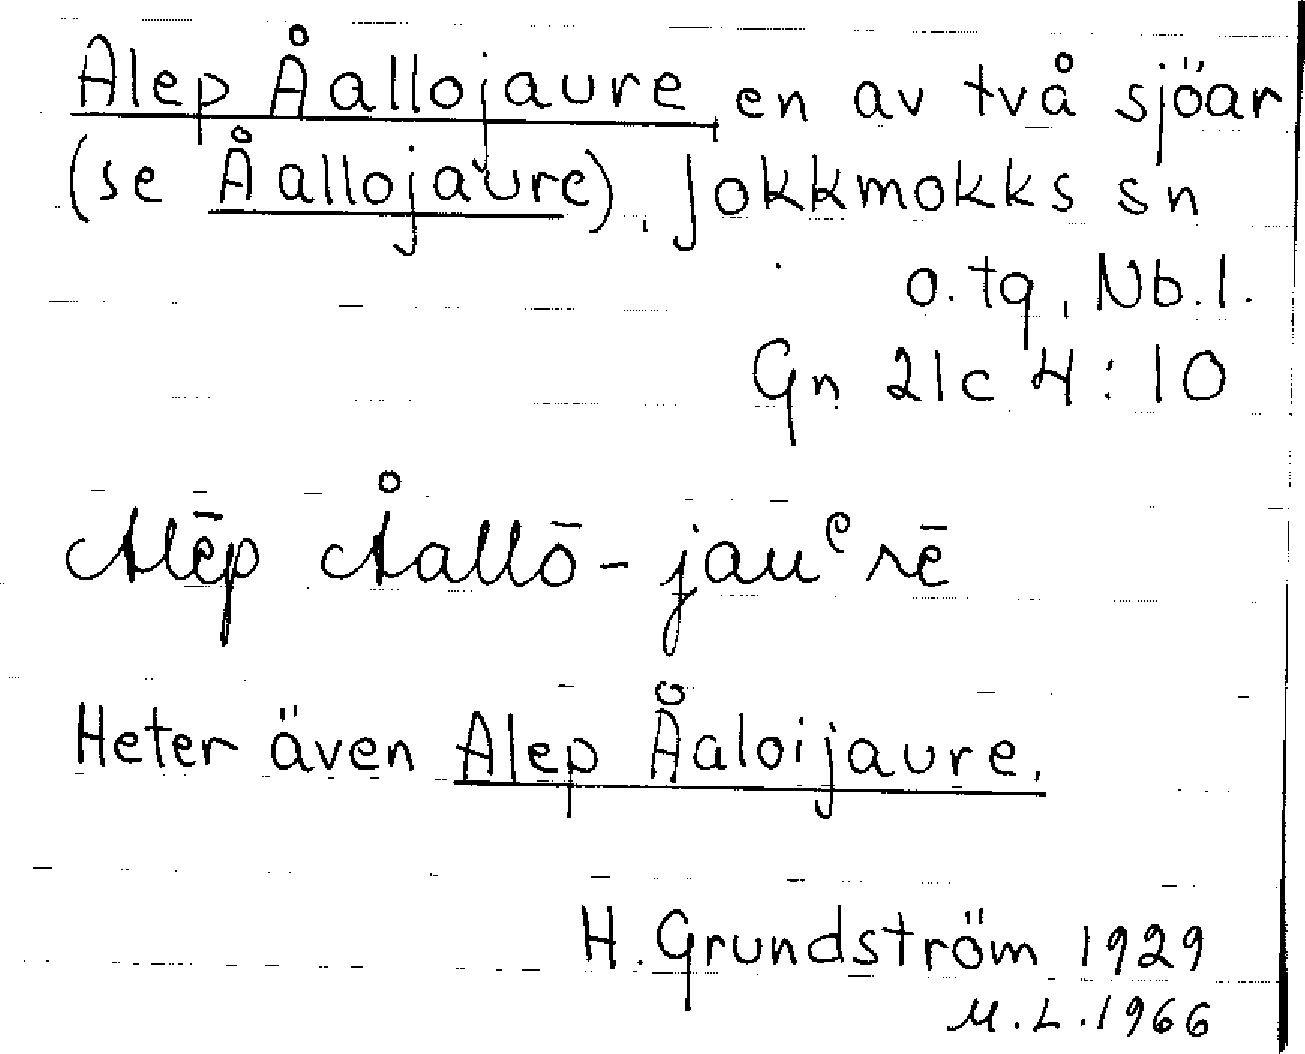 Alep Åallojaure, en av två sjöar
(se Åallojaure), Jokkmokks sn
o. tg, Nb.l.
Gn 21c 4:10
Alēp Åallō-jauᵉrē
Heter även Alep Åaloijaure.
H. Grundström 1929
M.L. 1966